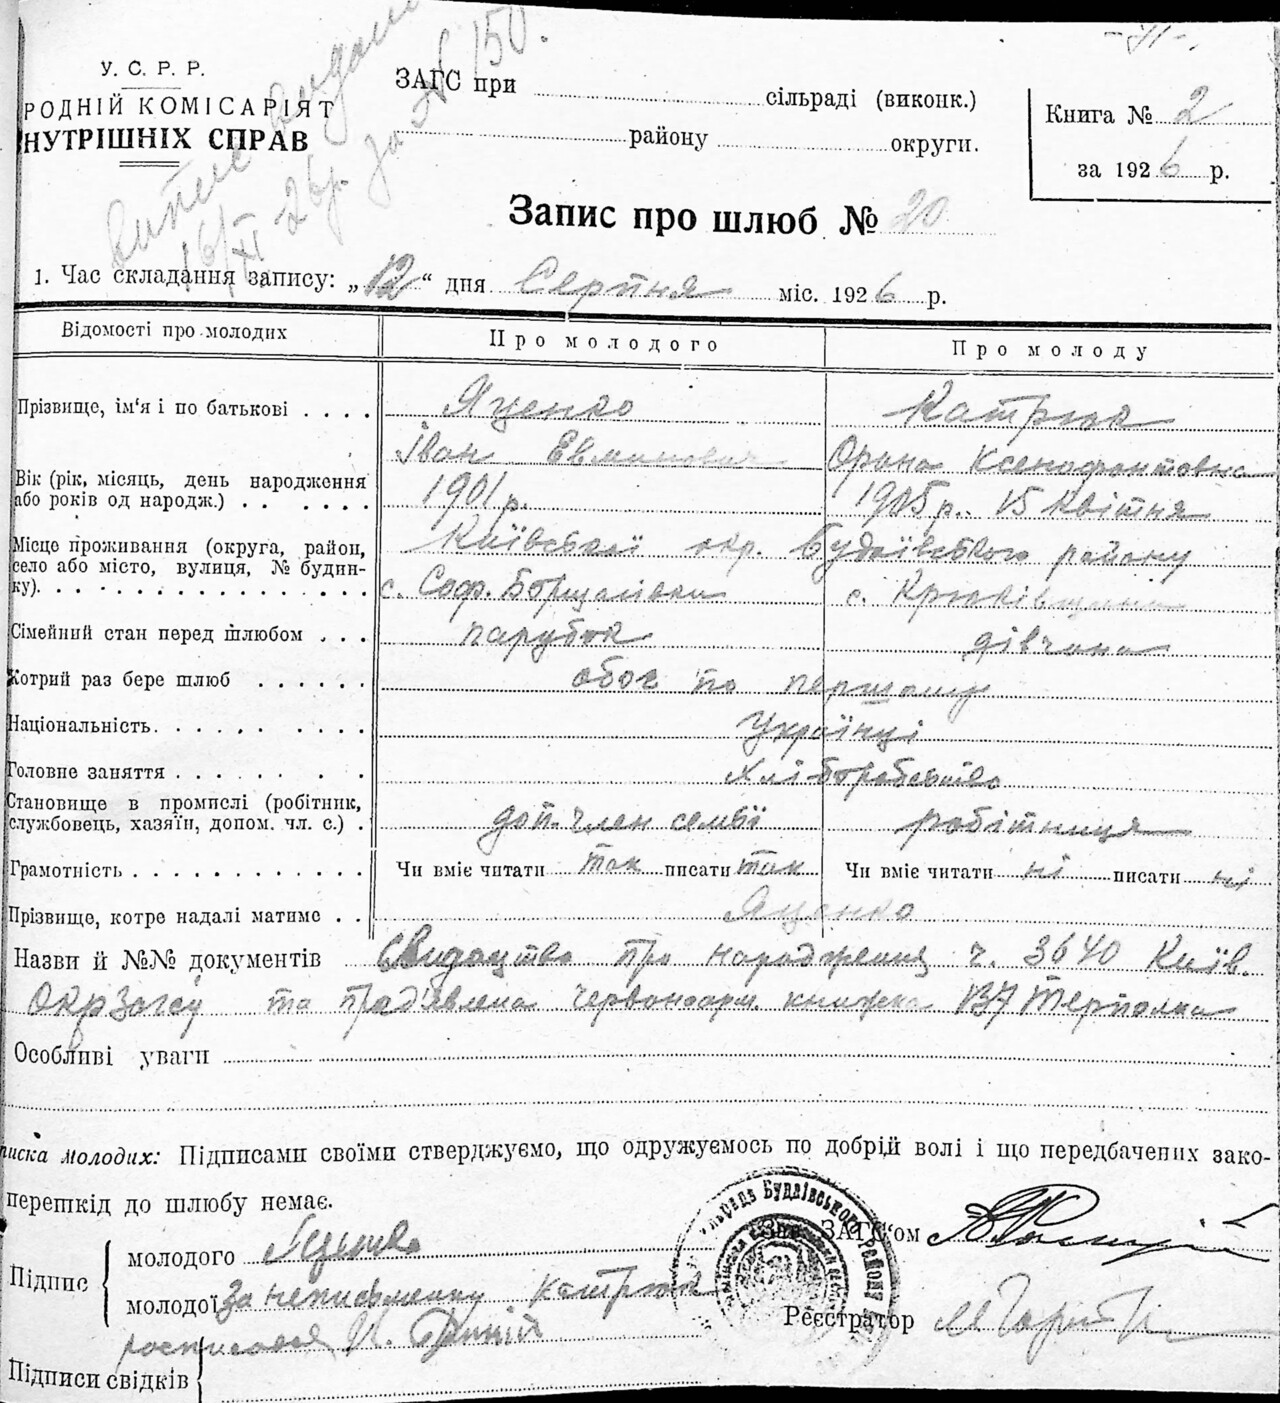 У. С. Р. Р.
РОДНІЙ КОМІСАРІЯТ
НУТРІШНІХ СПРАВ
Випис видано
16/XI 26р. за № 150.
ЗАГС при сільраді (виконк.)
району округи.
Книга № 2
за 1926 р.
Запис про шлюб № 20
1. Час складання запису: „12“ дня Серпня міс. 1926 р.
Відомості про молодих Про молодого Про молоду
Прізвище, ім'я і по батькові . . . . Яценко Катрюк
Іван Орина Ксенофонтовна
Вік (рік, місяць, день народження
або років од народж.) . . . . . . 1901 р. 1905 р. 15 Квітня
Місце проживання (округа, район, Київської окр. Будаївського району
село або місто, вулиця, № будин-
ку). . . . . . . . . . . . . . . . с. Соф. Борщагівки с. Крюківщина
Сімейний стан перед шлюбом . . . парубок дівчина
Котрий раз бере шлюб . . . . . . обоє по першому
Національність. . . . . . . . . . Українці
Головне заняття . . . . . . . . Хліборобство
Становище в промислі (робітник,
службовець, хазяїн, допом. чл. с.) . доп. член семьї робітниця
Грамотність . . . . . . . . . . . . Чи вміє читати так писати так Чи вміє читати ні писати ні
Прізвище, котре надалі матиме . . Яценко
Назви й №№ документів Свидоцтво про народження ч. 3640 Київ.
ОкрЗагсу та предявлена червоноарм. книжка
Особливі уваги
писка молодих: Підписами своїми стверджуємо, що одружуємось по добрій волі і що передбачених зако-
перешкід до шлюбу немає.
Підпис
молодого Яценко
молодої За неписьменну Катрюк
росписався
Підписи свідків
Зав. ЗАГС'ом
Реєстратор
Будаївського Району